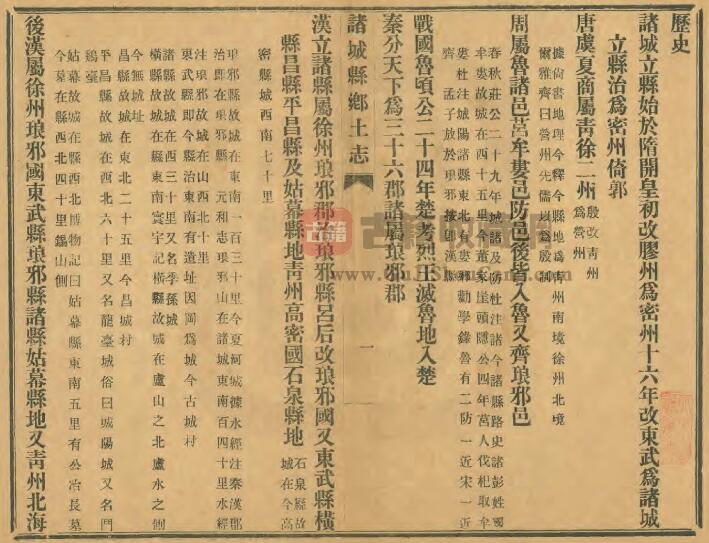 歷史
諸城立縣始於隋開皇初改膠州為密州十六年改東武為諸城
立縣治為密州倚郭
唐虞夏商屬青徐二州殷改青州為營州
據尚書地理今釋今縣地為青州南境徐州北境
爾雅齊曰營州先儒以為殷制
周屬魯諸邑莒牟婁邑防邑後皆入魯又齊琅邪邑
春秋莊公二十九年城諸及防杜注諸今諸縣路史諸彭姓國
牟婁故城在西四十五里今董家崖頭隱公四年莒人伐杞取牟
婁杜注城陽諸縣東北有婁鄉勸學錄魯有二防一近宋一近
齊 孟子放於琅邪按卽漢縣
戰國魯頃公二十四年楚考烈王滅魯地入楚
秦分天下為三十六郡諸屬琅邪郡
諸城縣鄉土志
一
漢立諸縣屬徐州琅邪郡治琅邪縣呂后改琅邪國又東武縣橫
縣昌縣平昌縣及姑幕縣地青州高密國石泉縣地石泉縣故城在今高
密縣城西南七十里
琅邪縣故城在東南一百三十里今夏河城據水經注秦漢郡
治卽在琅邪縣 元和志琅邪山在諸城東南百四十里水經
注琅邪故城在山西北十里
東武縣卽今縣治東南有遺址因岡為城今古城村
諸縣故城在西三十里又名季孫城
橫縣故城在縣東南寰宇記橫縣故城在盧山之北盧水之側
今無城址
昌縣故城在東北二十五里今昌城村
平昌縣故城在西北六十里又名龍臺城俗曰城陽城又名門
鷄臺
姑幕故城在縣西北博物記曰姑幕縣東南五里有公冶長墓
今墓在縣西北四十里錫山側
後漢屬徐州琅邪國東武縣琅邪縣諸縣姑幕縣地又青州北海
古籍